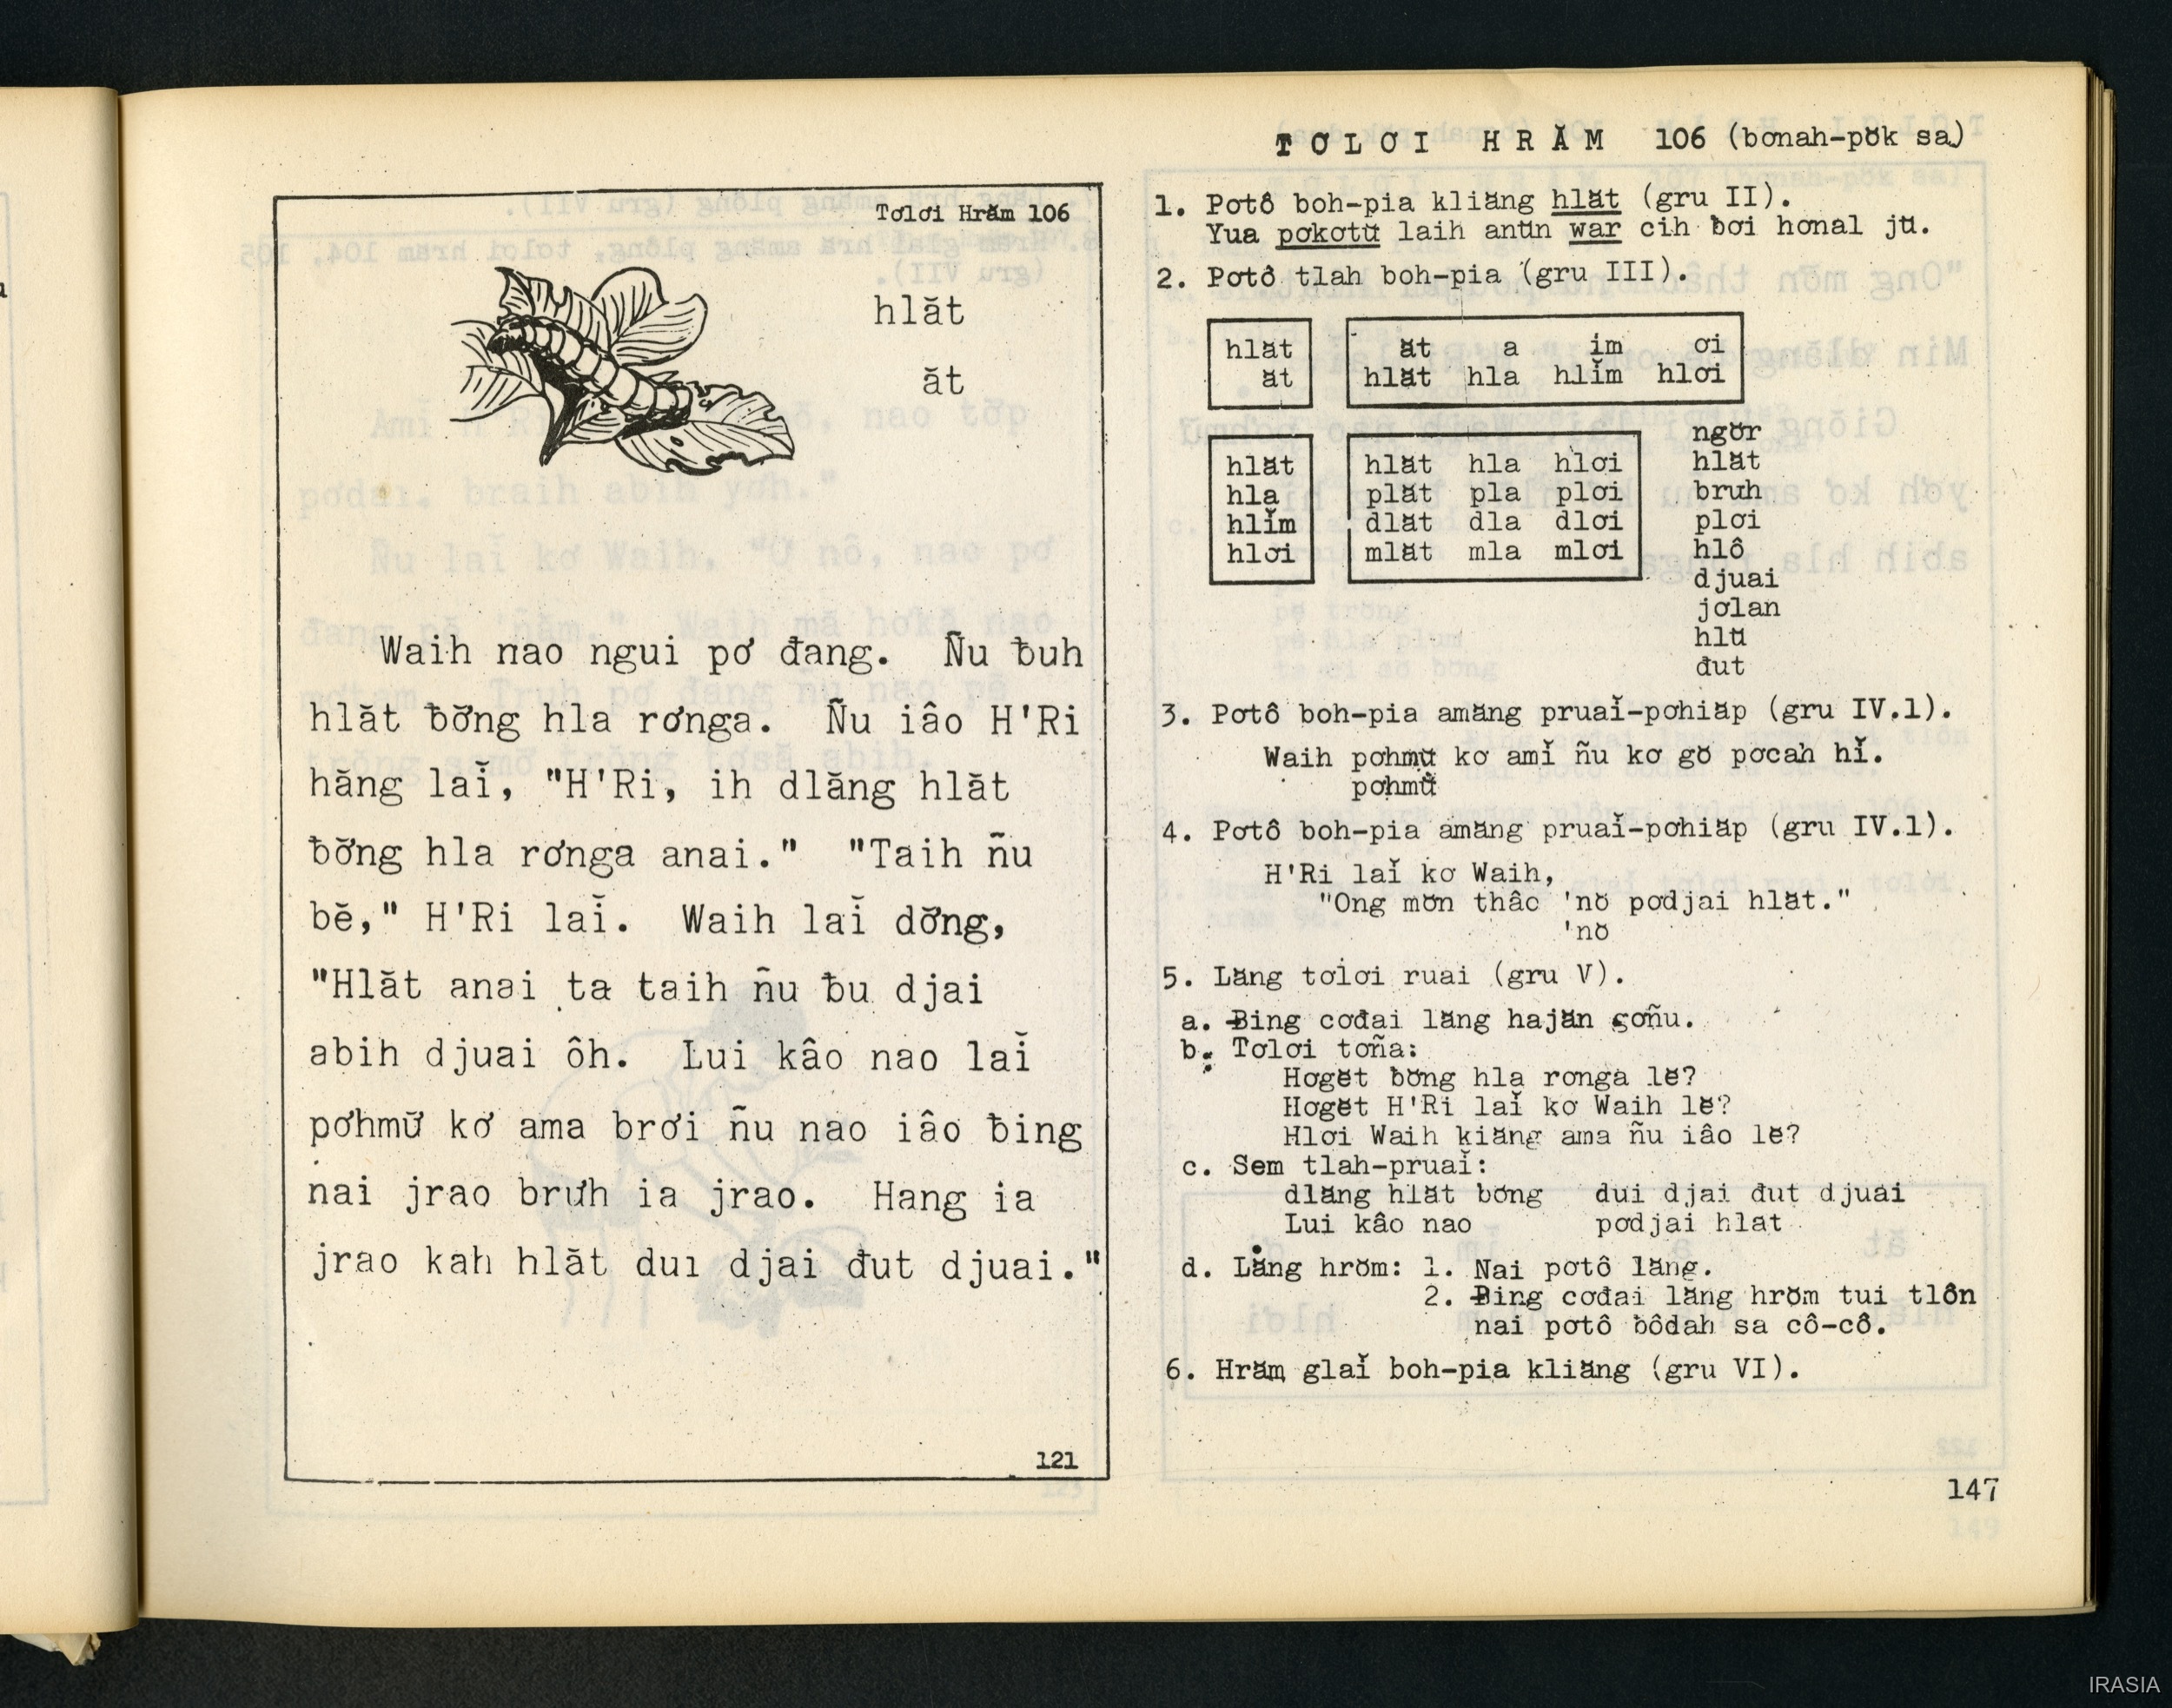 Tơlơi Hrăm 106
hlăt
ăt
Waih nao ngui pơ đang. Ñu ƀuh
hlăt ƀơ̆ng hla rơnga. Ñu iâo H'Ri
hăng laĭ, "H'Ri, ih dlăng hlăt
ƀơ̆ng hla rơnga anai." "Taih ñu
bĕ," H'Ri laĭ. Waih laĭ dơ̆ng,
"Hlăt anai ta taih ñu ƀu djai
abih djuai ôh. Lui kâo nao laĭ
pơhmư̆ kơ ama brơi ñu nao iâo ƀing
nai jrao brưh ia jrao. Hang ia
jrao kah hlăt dui djai đut djuai."
121
TƠLƠI HRĂM 106 (bơnah-pŏk sa)
1. Pơtô boh-pia kliăng hlăt (gru II).
Yua pơkơtŭ laih anŭn war cih ƀơi hơnal jŭ.
2. Pơtô tlah boh-pia (gru III).
hlăt ăt a ĭm ơi
ăt hlăt hla hlĭm hlơi
ngơ̆r
hlăt hlăt hla hlơi hlăt
hla plăt pla plơi brưh
hlĭm dlăt dla dlơi plơi
hlơi mlăt mla mlơi hlô
djuai
jơlan
hlŭ
đut
3. Pơtô boh-pia amăng pruaĭ-pơhiăp (gru IV.1).
Waih pơhmư̆ kơ amĭ ñu kơ gŏ pơcah hĭ.
pơhmư̆
4. Pơtô boh-pia amăng pruaĭ-pơhiăp (gru IV.1).
H'Ri laĭ kơ Waih,
"Ong mơ̆n thâo 'nŏ pơdjai hlăt."
'nŏ
5. Lăng tơlơi ruai (gru V).
a. Ƀing cơđai lăng hajăn gơñu.
b. Tơlơi tơña:
Hơgĕt ƀơ̆ng hla rơnga lĕ?
Hơgĕt H'Ri laĭ kơ Waih lĕ?
Hlơi Waih kiăng ama ñu iâo lĕ?
c. Sem tlah-pruaĭ:
dlăng hlăt ƀơ̆ng dui djai đut djuai
Lui kâo nao pơdjai hlăt
d. Lăng hrŏm: 1. Nai pơtô lăng.
2. Ƀing cơđai lăng hrŏm tui tlôn
nai pơtô ƀôdah sa cô-cô.
6. Hrăm glaĭ boh-pia kliăng (gru VI).
147
IRASIA